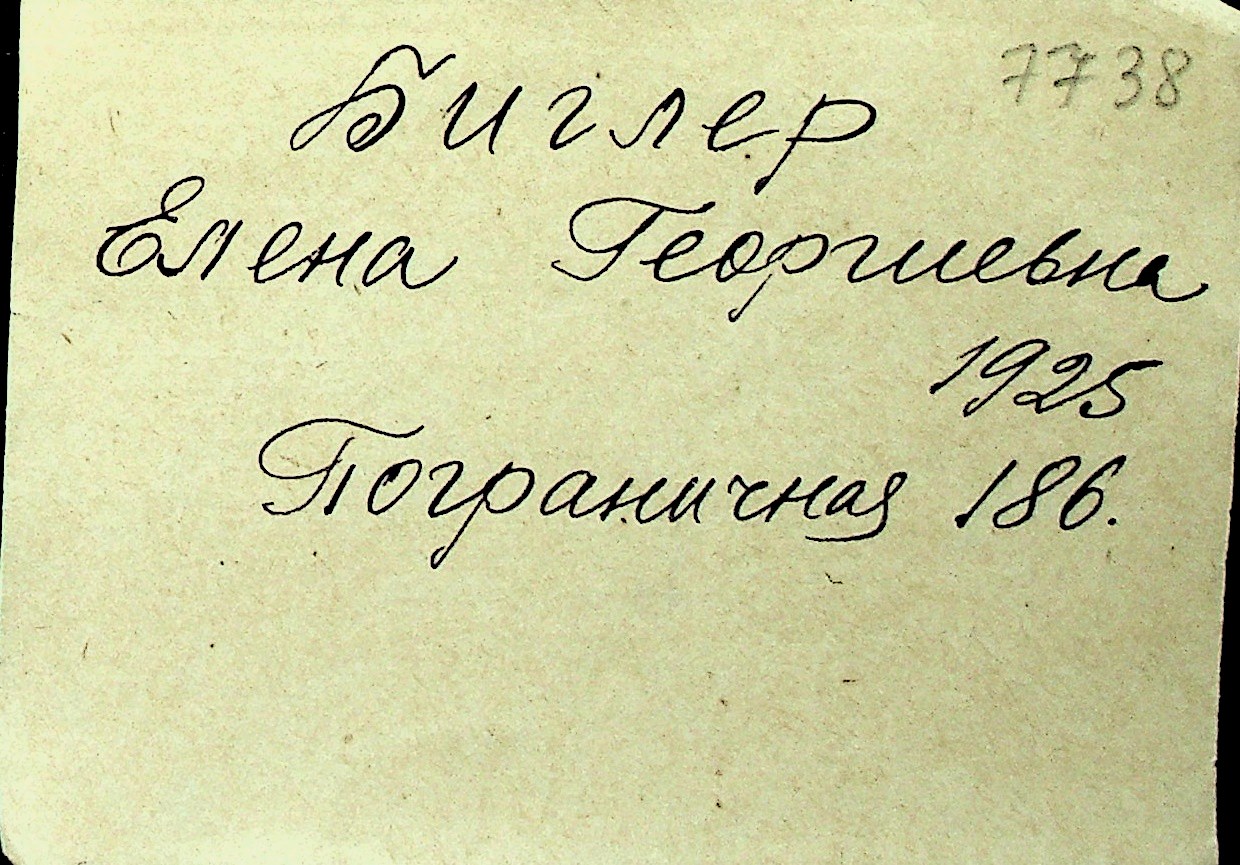 7738
Биглер
Елена Георгиевна
1925
Пограничная 186.